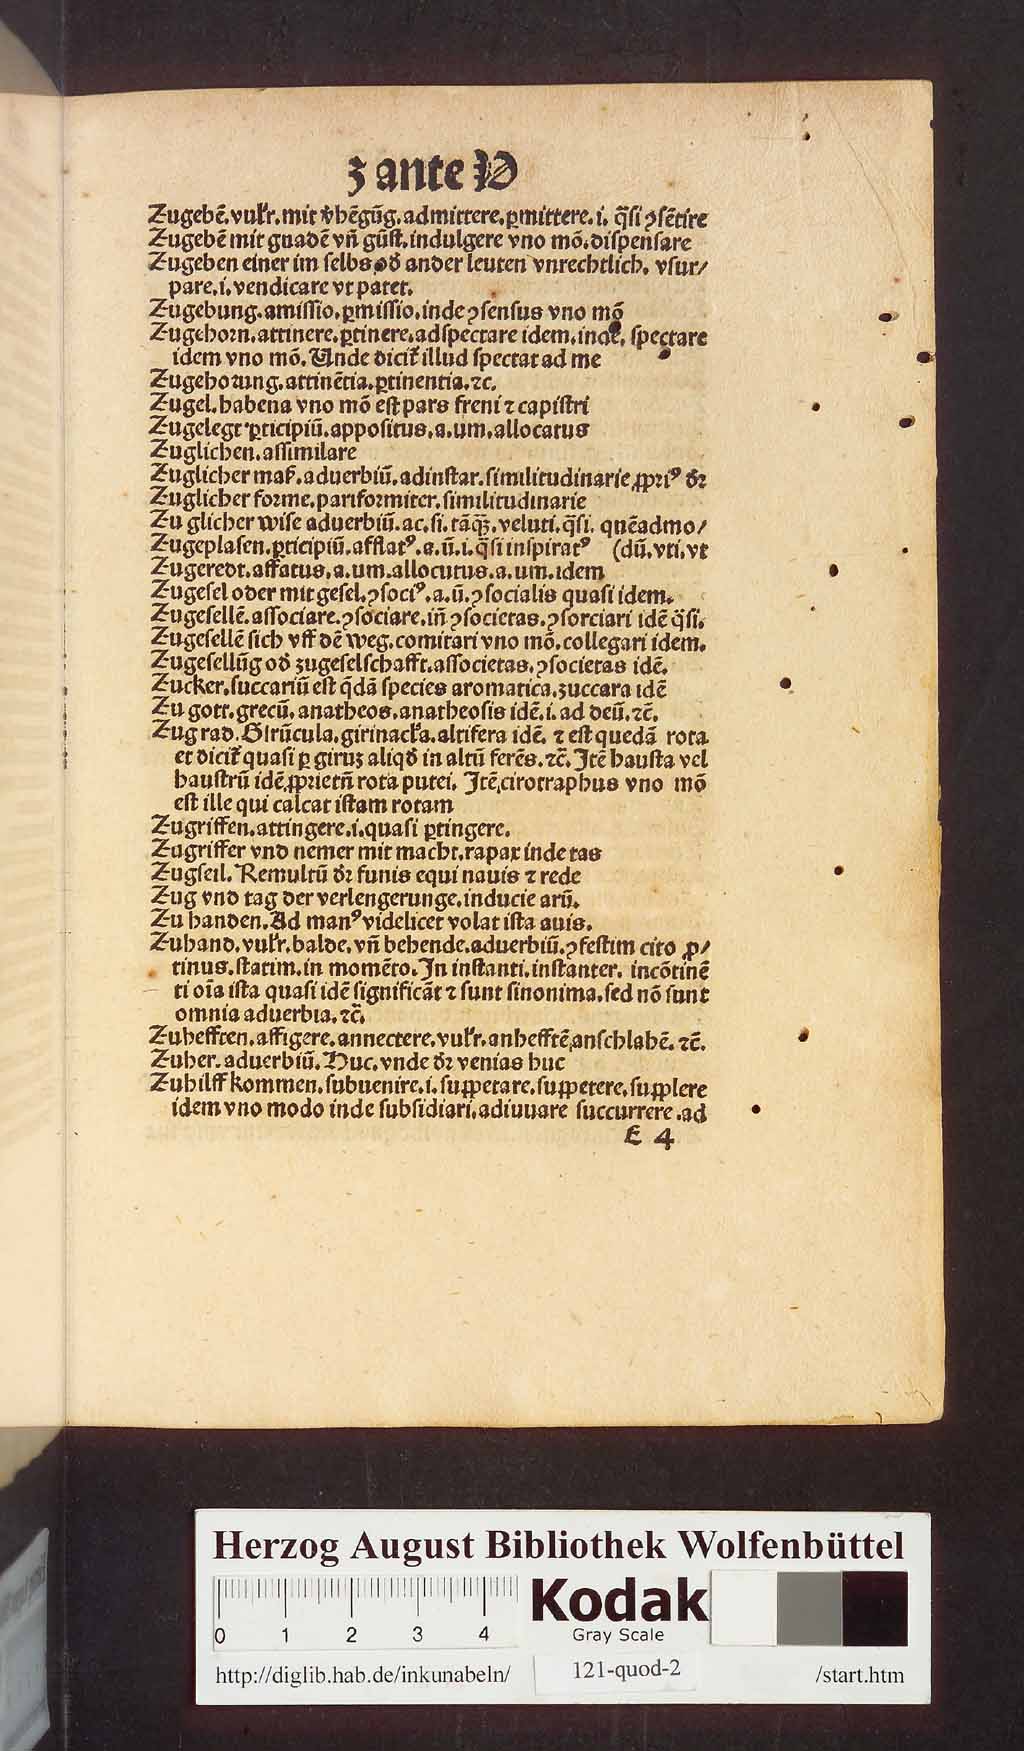 ʒ ante V
Zugebē. vulr̄. mit v̄hēgūg. admittere. ꝑmittere. i. q̄si ꝯsētire
Zugebē mit gnadē vn̄ gūst. indulgere vno mō. dispensare
Zugeben einer im selbs. od̄ ander leuten vnrechtlich. vsur/
pare. i. vendicare vt patet.
Zugebung. amissio. ꝑmissio. inde ꝯsensus vno mō
Zugehorn. attinere. ꝑtinere. adspectare idem. inde. spectare
idem vno mō. Unde dicit᷑ illud spectat ad me
Zugehorung. attinētia. ꝑtinentia. ⁊c.
Zugel. habena vno mō est pars freni ⁊ capistri
Zugelegt ꝑticipiū. appositus. a. um. allocatus
Zuglichen. assimilare
Zuglicher maß. aduerbiū. adinstar. similitudinarie ꝓpriꝰ dr̄
Zuglicher forme. pariformiter. similitudinarie
Zu glicher wise aduerbiū. ac. si. tāqꝫ. veluti. q̄si. quēadmo/
Zugeplasen. ꝑticipiū. afflatꝰ. a. ū. i. q̄si inspiratꝰ (dū. vti. vt
Zugeredt. affatus. a. um. allocutus. a. um. idem
Zugesel oder mit gesel. ꝯsociꝰ. a. ū. ꝯsocialis quasi idem.
Zugesellē. associare. ꝯsociare. in̄ ꝯsocietas. ꝯsorciari idē q̄si.
Zugesellē sich vff dē weg. comitari vno mō. collegari idem.
Zugesellūg od̄ zugeselschafft. associetas. ꝯsocietas idē.
Zucker. succariū est q̄dā species aromatica. zuccara idē
Zu gott. grecū. anatheos. anatheosis idē. i. ad deū. ⁊c̄.
Zug rad. Girūcula. girinacl̄a. altifera idē. ⁊ est quedā rota
et dicit᷑ quasi ꝑ giruꝫ aliqd̄ in altū ferēs. ⁊c̄. Itē hausta vel
haustrū idē. ꝓprietn̄ rota putei. Itē. cirotraphus vno mō
est ille qui calcat istam rotam
Zugriffen. attingere. i. quasi ꝑtingere.
Zugriffer vnd nemer mit macht. rapax inde tas
Zugseil. Remultū dr̄ funis equi nauis ⁊ rede
Zug vnd tag der verlengerunge. inducie arū.
Zu handen. Ad manꝰ videlicet volat ista auis.
Zuhand. vulr̄. balde. vn̄ behende. aduerbiū. ꝯfestim cito ꝓ/
tinus. statim. in momēto. In instanti. instanter. incōtinē
ti oīa ista quasi idē significāt ⁊ sunt sinonima. sed nō sunt
omnia aduerbia. ⁊c̄.
Zuhefften. affigere. annectere. vulr̄. anhefftē anschlahē. ⁊c̄.
Zuher. aduerbiū. Huc. vnde dr̄ venias huc
Zuhilff kommen. subuenire. i. suꝓpetare. suꝓpetere. suꝓplere
idem vno modo inde subsidiari. adiuuare succurrere. ad
E 4
Herzog August Bibliothek Wolfenbüttel
0 1 2 3 4
Kodak
Gray Scale
http://diglib.hab.de/inkunabeln/ 121-quod-2 /start.htm